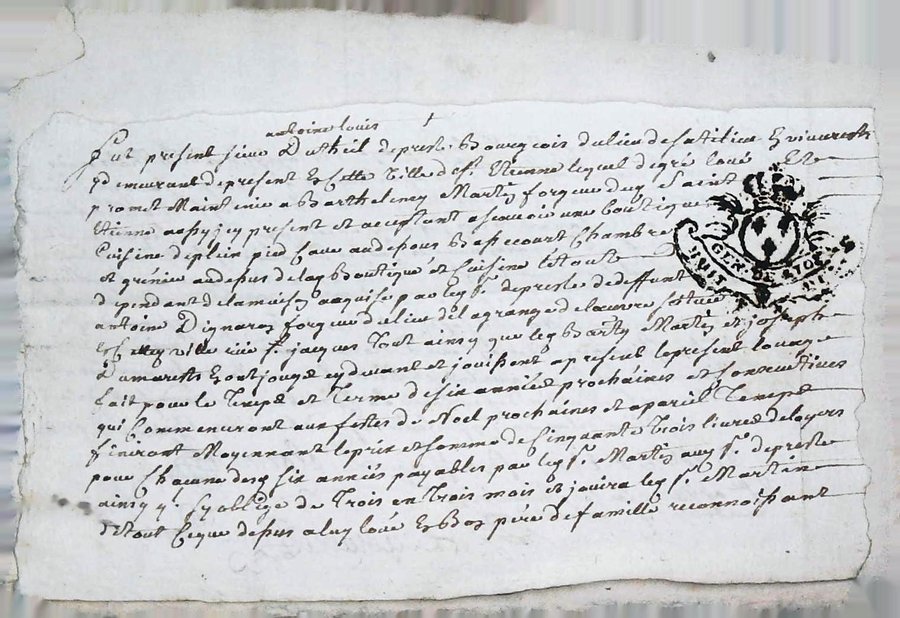 antoine louis
Fut present sieur Dutheil depresle Bourgeois du lieu de satilieu En vivarests
y demeurant de present En Cette Ville de st. Etienne lequel de gré loué Et
promet Maintenir a Barthelemy Martin forgeur dud Saint
Etienne aussy icy present et acceptant a scavoir une boutique
Cuisine de plein pied Cave au dessous Bassecourt Chambre
et grénier au dessus de lad Boutique et Cuisine le tout
dependant de la maison aquise par led sr. depresle de deffunt
antoine forgeur du lieu de la grange de loeuvre scituée
En Cette ville rue st. jacques Tout ainsy que led Barthy Martin et joseph
Damarests En ont jouy cy devant et jouissent a present le present louage
fait pour le Temps et Terme de six années prochaines et Consecutives
qui Commenceront aux festes de Noel prochaines et a pareil Temps
finiront Moyennant le prix et somme de Cinquante Trois livres de loyers
pour Chacune desd six années payables par led sr. Martin aud sr. depresle
ainsy qu. sy oblige de Trois en Trois mois et jouira led sr. Martin
de tout Ceque dessus a luy loué En Bon pére de famille reconnoissant
GEN. DE RIOM